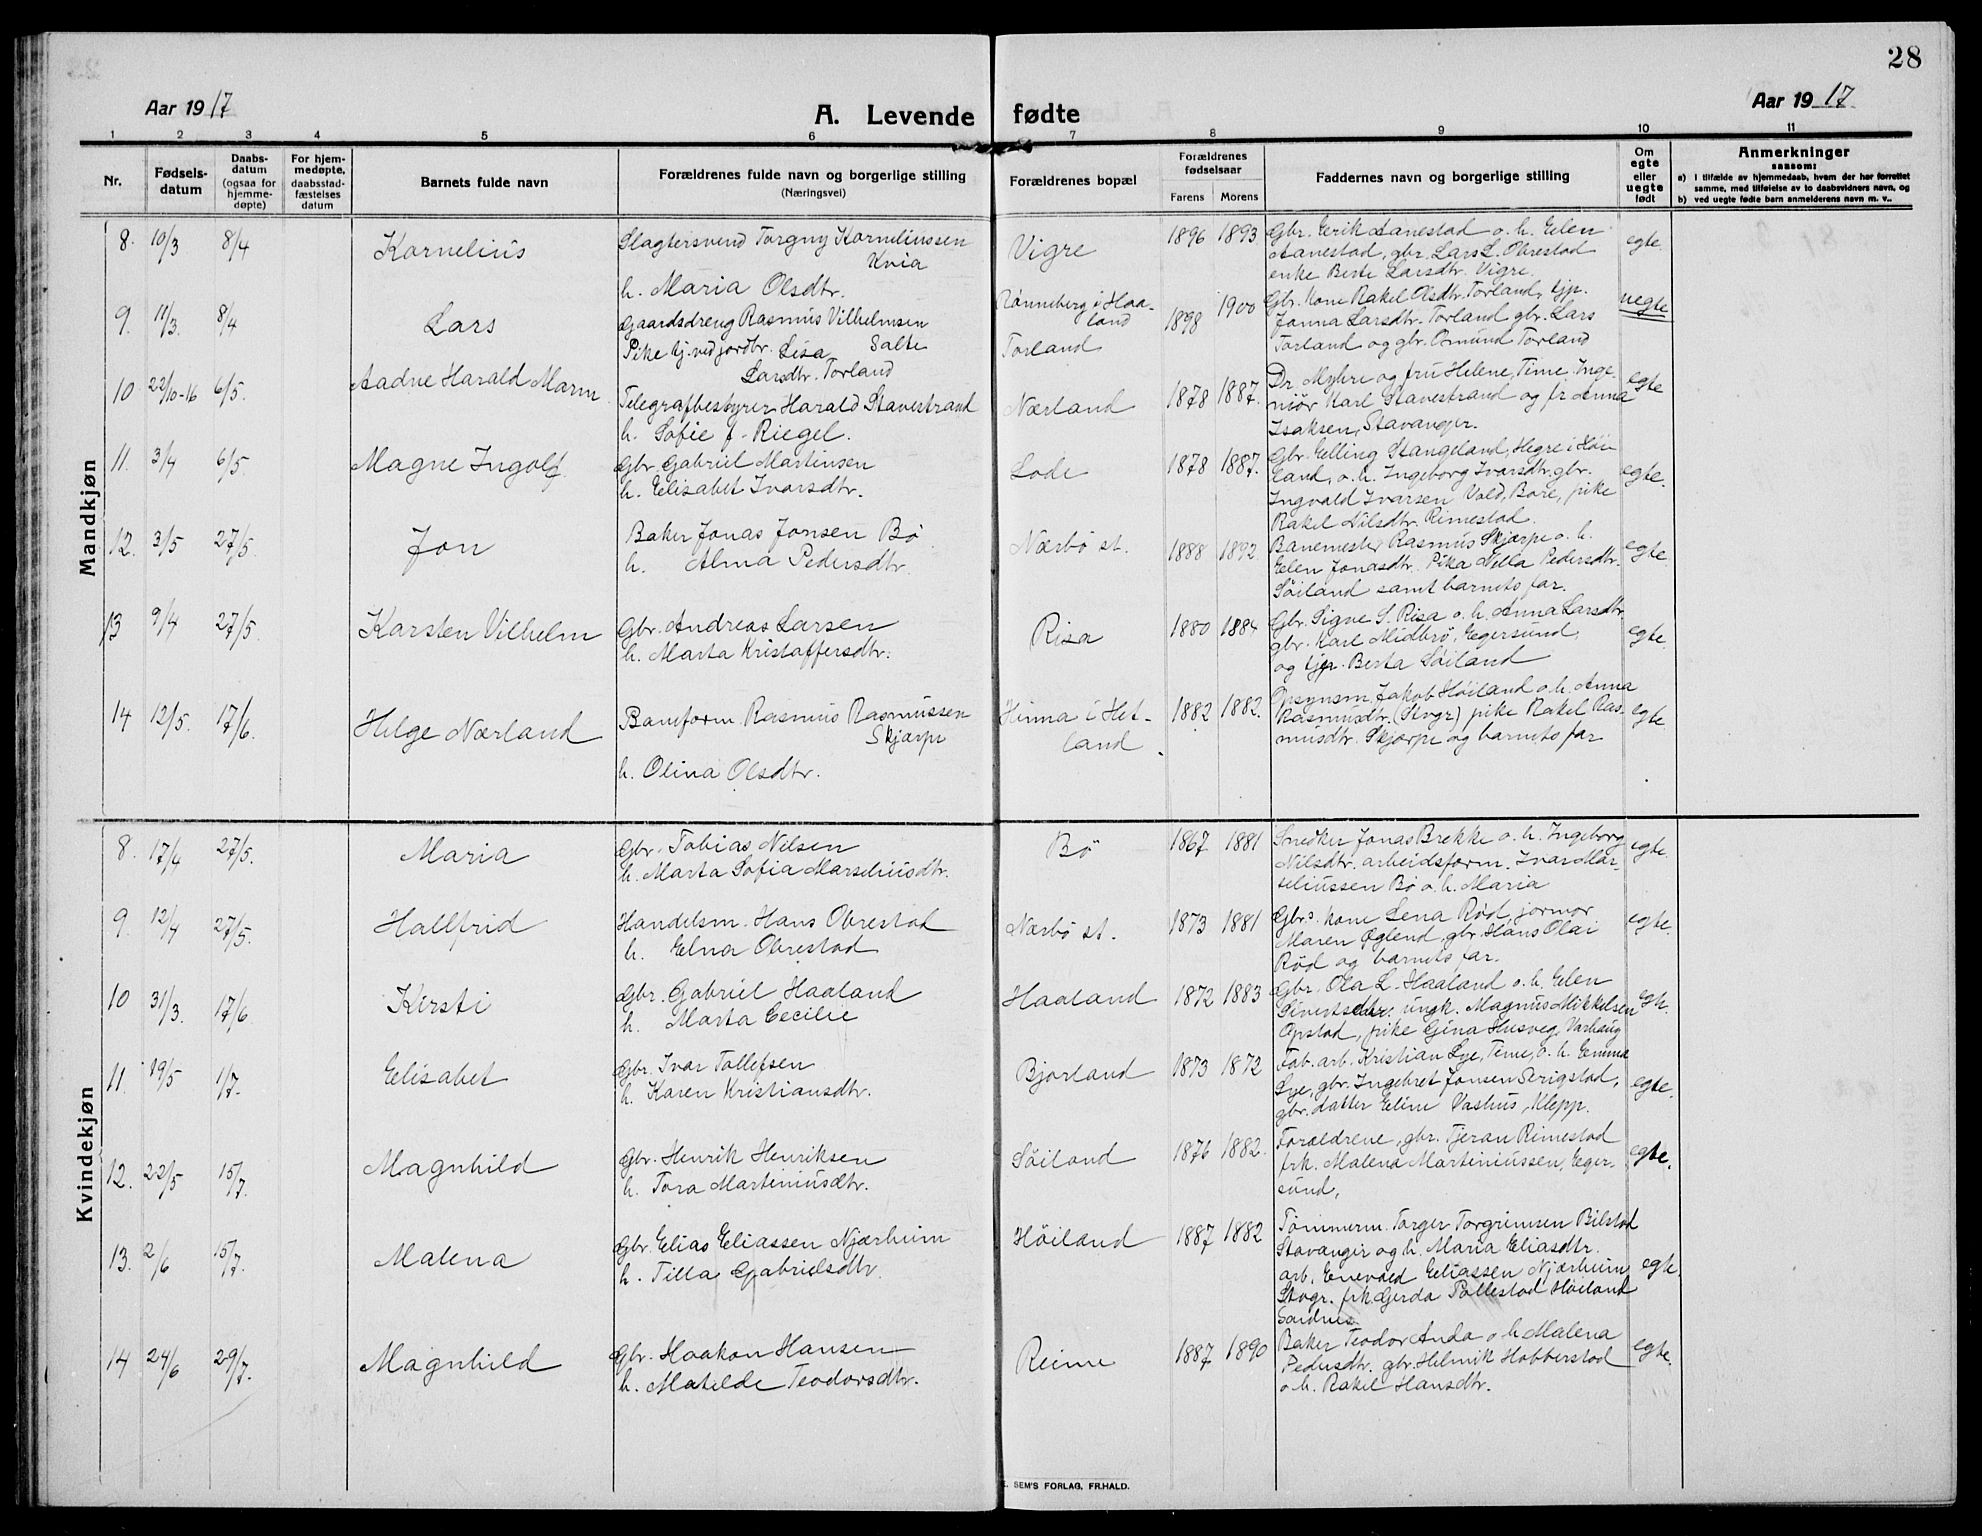 28
Aar 1917
A. Levende fødte
Aar 1917
1 2 3 4 5 6 7 8 9 10 11
Nr.
Fødsels-
datum
Daabs-
datum
(ogsaa for
hjemme-
døpte)
For hjem-
medøpte,
daabsstad-
fæstelses
datum
Barnets fulde navn
Forældrenes fulde navn og borgerlige stilling
(Næringsvei)
Forældrenes bopæl
Forældrenes
fødselsaar
Farens Morens
Faddernes navn og borgerlige stilling
Om
egte
eller
uegte
født
Anmerkninger
saasom:
a) i tilfælde av hjemmedaab, hvem der har forrettet
samme, med tilføielse av to daabsvidners navn, og
b) ved uegte fødte barn anmelderens navn m. v..
Mandkjøn
8. 10/3 8/4 Kornelius
Slagtersvend Torgny Kornelinssen
Kvia
h. Maria Olsdtr.
Vigre
1896 1893
Gbr. Eerik Aanestad o. h. Eelen
Aanestad, gbr. Lars L. Obrestad
enke Berte Larsdtr. Vigre.
egte.
9. 11/3. 8/4 Lars
Gaardsdreng Rasmus Vilhelmsen
Salte
Pike tj. ved jordbr. Lisa
Larsdtr. Torland
Rønneberg i Haa-
land
Torland
1898 1900
Gbr. kone Rakel Olsdtr. Torland, tjp.
Janna Larsdtr. Torland gbr. Lars
Torland og gbr. Osmund Torland
uegte
10 22/10-16 6/5. Aadne Harald Marm
Telegrafbestyrer Harald Stavestrand
h. Sofie f. Riegel.
Nærland
1878 1887.
Dr. Myhre og fru Helene, Time. Inge-
niør Karl Stavestrand og fr. Anna
Isaksen, Stavanger.
egte
11. 3/4 6/5. Magne Ingolf
Gbr. Gabriel Martinsen
h. Elisabet Ivarsdtr.
Lode
1878 1887.
Gbr. Elling Stangeland, Hegre i Høi-
land, o. h. Ingeborg Ivarsdtr, gbr.
Ingvald Ivarsen Vold, Bore, pike
Rakel Nilsdtr. Rimestad.
egte.
12. 3/5 27/5. Jon
Baker Jonas Jonsen Bø
h. Alma Pedersdtr.
Nærbø st.
1888 1892.
Banemester Rasmus Skjærpe o. h.
Eelen Jonasdtr. Pika Nella Pedersdtr.
Søiland samt barnets far.
egte
13 9/4 27/5. Karsten Vilhelm
Gbr. Andreas Larsen
h. Marta Kristoffersdtr.
Risa
1880 1884
Gbr. Signe S. Risa o. h. Anna Larsdtr.
gbr. Karl Midbrø, Egersund,
og tjp. Berta Søiland
egte.
14 12/5. 17/6. Helge Nærland
Baneform. Rasmus Rasmussen
Skjærpe
h. Olina Olsdtr.
Hinna i Het-
land
1882 1882.
Opsynsm. Jakob Høiland o. h. Anna
Rasmusdtr. (Stvgr) pike Rakel Ras-
musdtr. Skjærpe og barnets far
egte.
Kvindekjøn
8. 17/4 27/5. Maria
Gbr. Tobias Nilsen
h. Marta Sofia Marseliusdtr.
Bø
1867 1881
Snedker Jonas Brekke o. h. Ingeborg
Nilsdtr. arbeidsform. Ivar Mar-
seliussen Bø o. h. Maria
egte.
9. 12/4 27/5. Hallfrid
Handelsm. Hans Obrestad
h. Elna Obrestad
Nærbø st.
1873 1881
Gbrs. kone Lena Rød, jormor
Maren Øglend, gbr. Hans Olai
Rød og barnets far.
egte.
10 31/3. 17/6 Kirsti
Gbr. Gabriel Haaland
h. Marta Cecilie
Haaland
1872 1883
Gbr. Ola L. Haaland o. h. Eelen
Sivertsdtr. ungk. Magnus Mikkelsen
Opstad, pike Gina Husveg, Varhaug
egte.
11. 19/5 1/7. Elisabet
Gbr. Ivar Tollefsen
h. Karen Kristiansdtr.
Bjorland
1873 1872
Fab. arb. Kristian Lye, Time, o. h. Emma
Lye, gbr. Ingebret Jonsen Serigstad,
gbr. datter Eline Vashus, Klepp.
egte.
12. 22/5 15/7. Magnhild
Gbr. Henrik Henriksen
h. Tora Martiniusdtr.
Søiland
1876 1882.
Forældrene, gbr. Tjeran Rimestad
frk. Malena Martiniussen, Eger-
sund,
egte.
13. 2/6 15/7. Malena
Gbr. Elias Eliassen Njærheim
h. Tilla Gabrielsdtr.
Høiland
1887 1882
Tømmerm. Torger Torgrimsen Bilstad
Stavanger og h. Maria Eliasdtr.
arb. Enevald Eliassen Njærheim
Stvgr. frk Gerda Pollestad Høiland
Sandnes
egte.
14 24/6 29/7. Magnhild
Gbr. Haakon Hansen
h. Matilde Teodorsdtr.
Reime
1887 1890
Baker Teodor Anda o. h. Malena
Pedersdtr. gbr. Helmik Hobberstad
o. h. Rakel Hansdtr.
egte.
SEM'S FORLAG, FR.HALD.